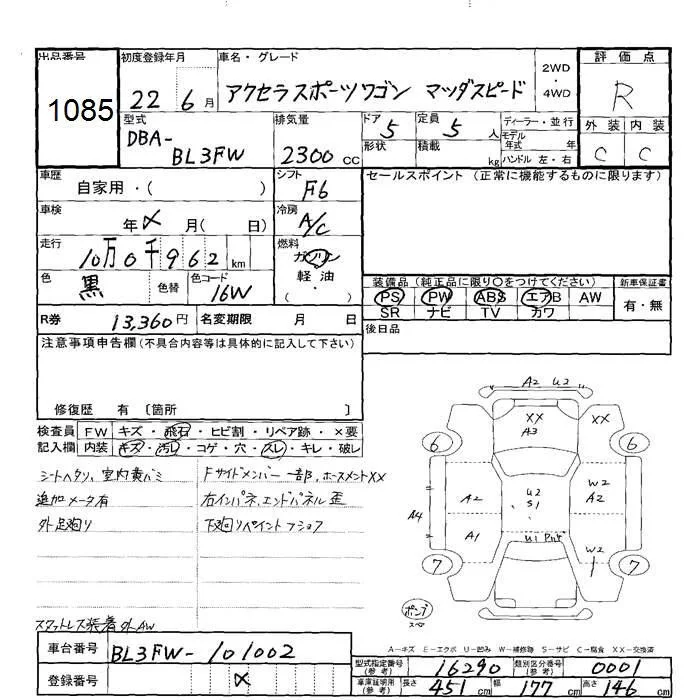 出品番号 初度登録年月 車名・グレード 2WD ・ 4WD 評価点
1085 22 6月 アクセラスポーツワゴン マッダスピード R
型式 排気量 ドア 定員 ディーラー・並行 外装 内装
DBA-BL3FW 2300cc 5 5人 モデル年式 年 C C
形状 積載 kg ハンドル 左・右
車歴 シフト セールスポイント (正常に機能するものに限ります)
自家用・( ) F6
車検 冷房
年 メ 月( 日) A/C
走行 燃料
10万0千962km ガソリン
色 色替 色コード 軽油
黒 16W ・( )
装備品 (純正品に限り○をつけてください) 新車保証書
PS PW ABS エアB AW 有・無
SR ナビ TV カワ
R券 13,360円 名変期限 月 日 後日品
注意事項申告欄(不具合内容等は具体的に記入して下さい)
修復歴 有 〔箇所 〕
検査員 FW キズ・飛石・ヒビ割・リペア跡・×要
記入欄 内装 キズ・汚レ・コゲ・穴・スレ・キレ・破レ
シートヘタリ、室内黄バミ Fサイドメンバー一部、ホースメントXX
追加メータ有 右インパネ、エンドパネル歪
外足廻り 下廻リペイント
スタットレス装着 外AW
A2 U2
XX XX
A3
6 6
W2
A2 U2 A2
S1
A4
A1 U1
W2
7 7
A-キズ E-エクボ U-凹み W-補修跡 S-サビ C-腐食 XX-交換済
車台番号 BL3FW-101002
登録番号 メ
型式指定番号(参考) 16290 類別区分番号(参考) 0001
車庫証明用(参考) 長さ 451cm 幅 177cm 高さ 146cm